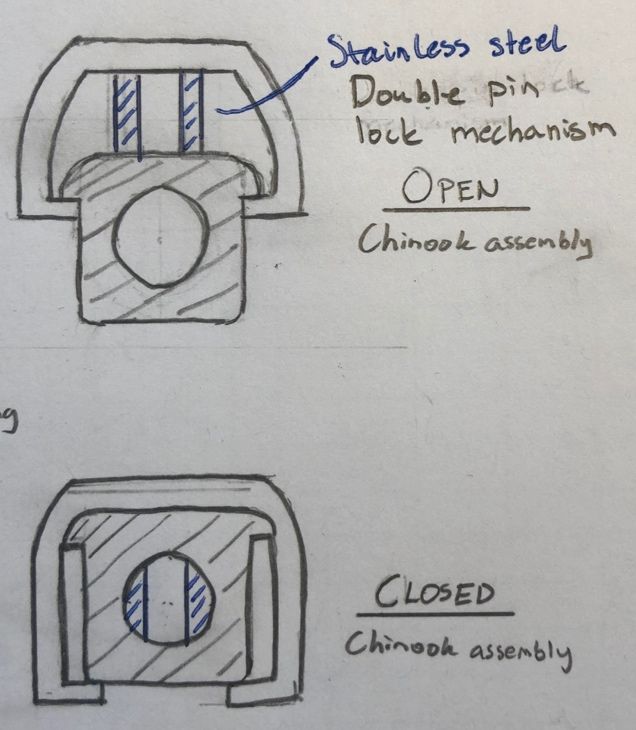 Stainless steel
Double pin
lock mechanism
OPEN
Chinook assembly
g
CLOSED
Chinook assembly